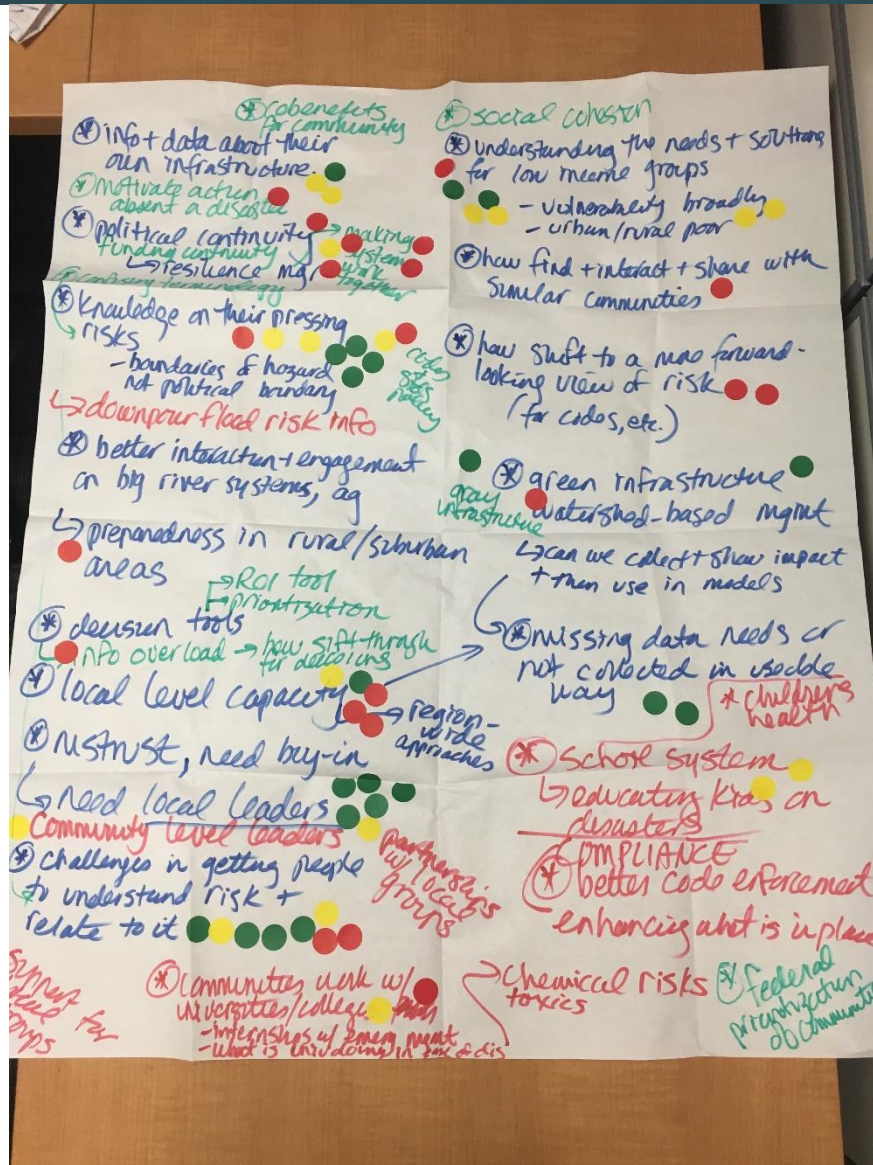 * cobenefits
for community
* info + data about their
own infrastructure.
* motivate action
absent a disaster
* political continuity
funding continuity
↳ resilience mgr
→ making
systems
work
together
* confusing terminology
* knowledge on their pressing
risks
- boundaries of hazard
not political boundary
codes
↳ downpour flood risk info
* better interaction + engagement
on big river systems, ag
↳ preparedness in rural/suburban
areas
→ ROI tool
→ prioritization
* decision tools
↳ info overload → how sift through
for decisions
* local level capacity
→ region-
wide
approaches
* mistrust, need buy-in
↳ need local leaders
Community level leaders
partnerships
w/ local
groups
* challenges in getting people
to understand risk +
relate to it
Support
local for
groups
* communities work w/
universities/colleges
- internships w/ emerg mgmt
- what is univ doing in of dis
→ chemical risks
toxics
* social cohesion
* understanding the needs + solutions
for low income groups
- vulnerability broadly
- urban/rural poor
* how find + interact + share with
similar communities
* how shift to a more forward-
looking view of risk
(for codes, etc.)
* green infrastructure
gray
infrastructure
watershed-based mgmt
↳ can we collect + show impact
+ then use in models
* missing data needs or
not collected in useable
way
* childrens
health
* school system
↳ educating kids on
disasters
COMPLIANCE
* better code enforcement
enhancing what is in place
* federal
prioritization
of communities